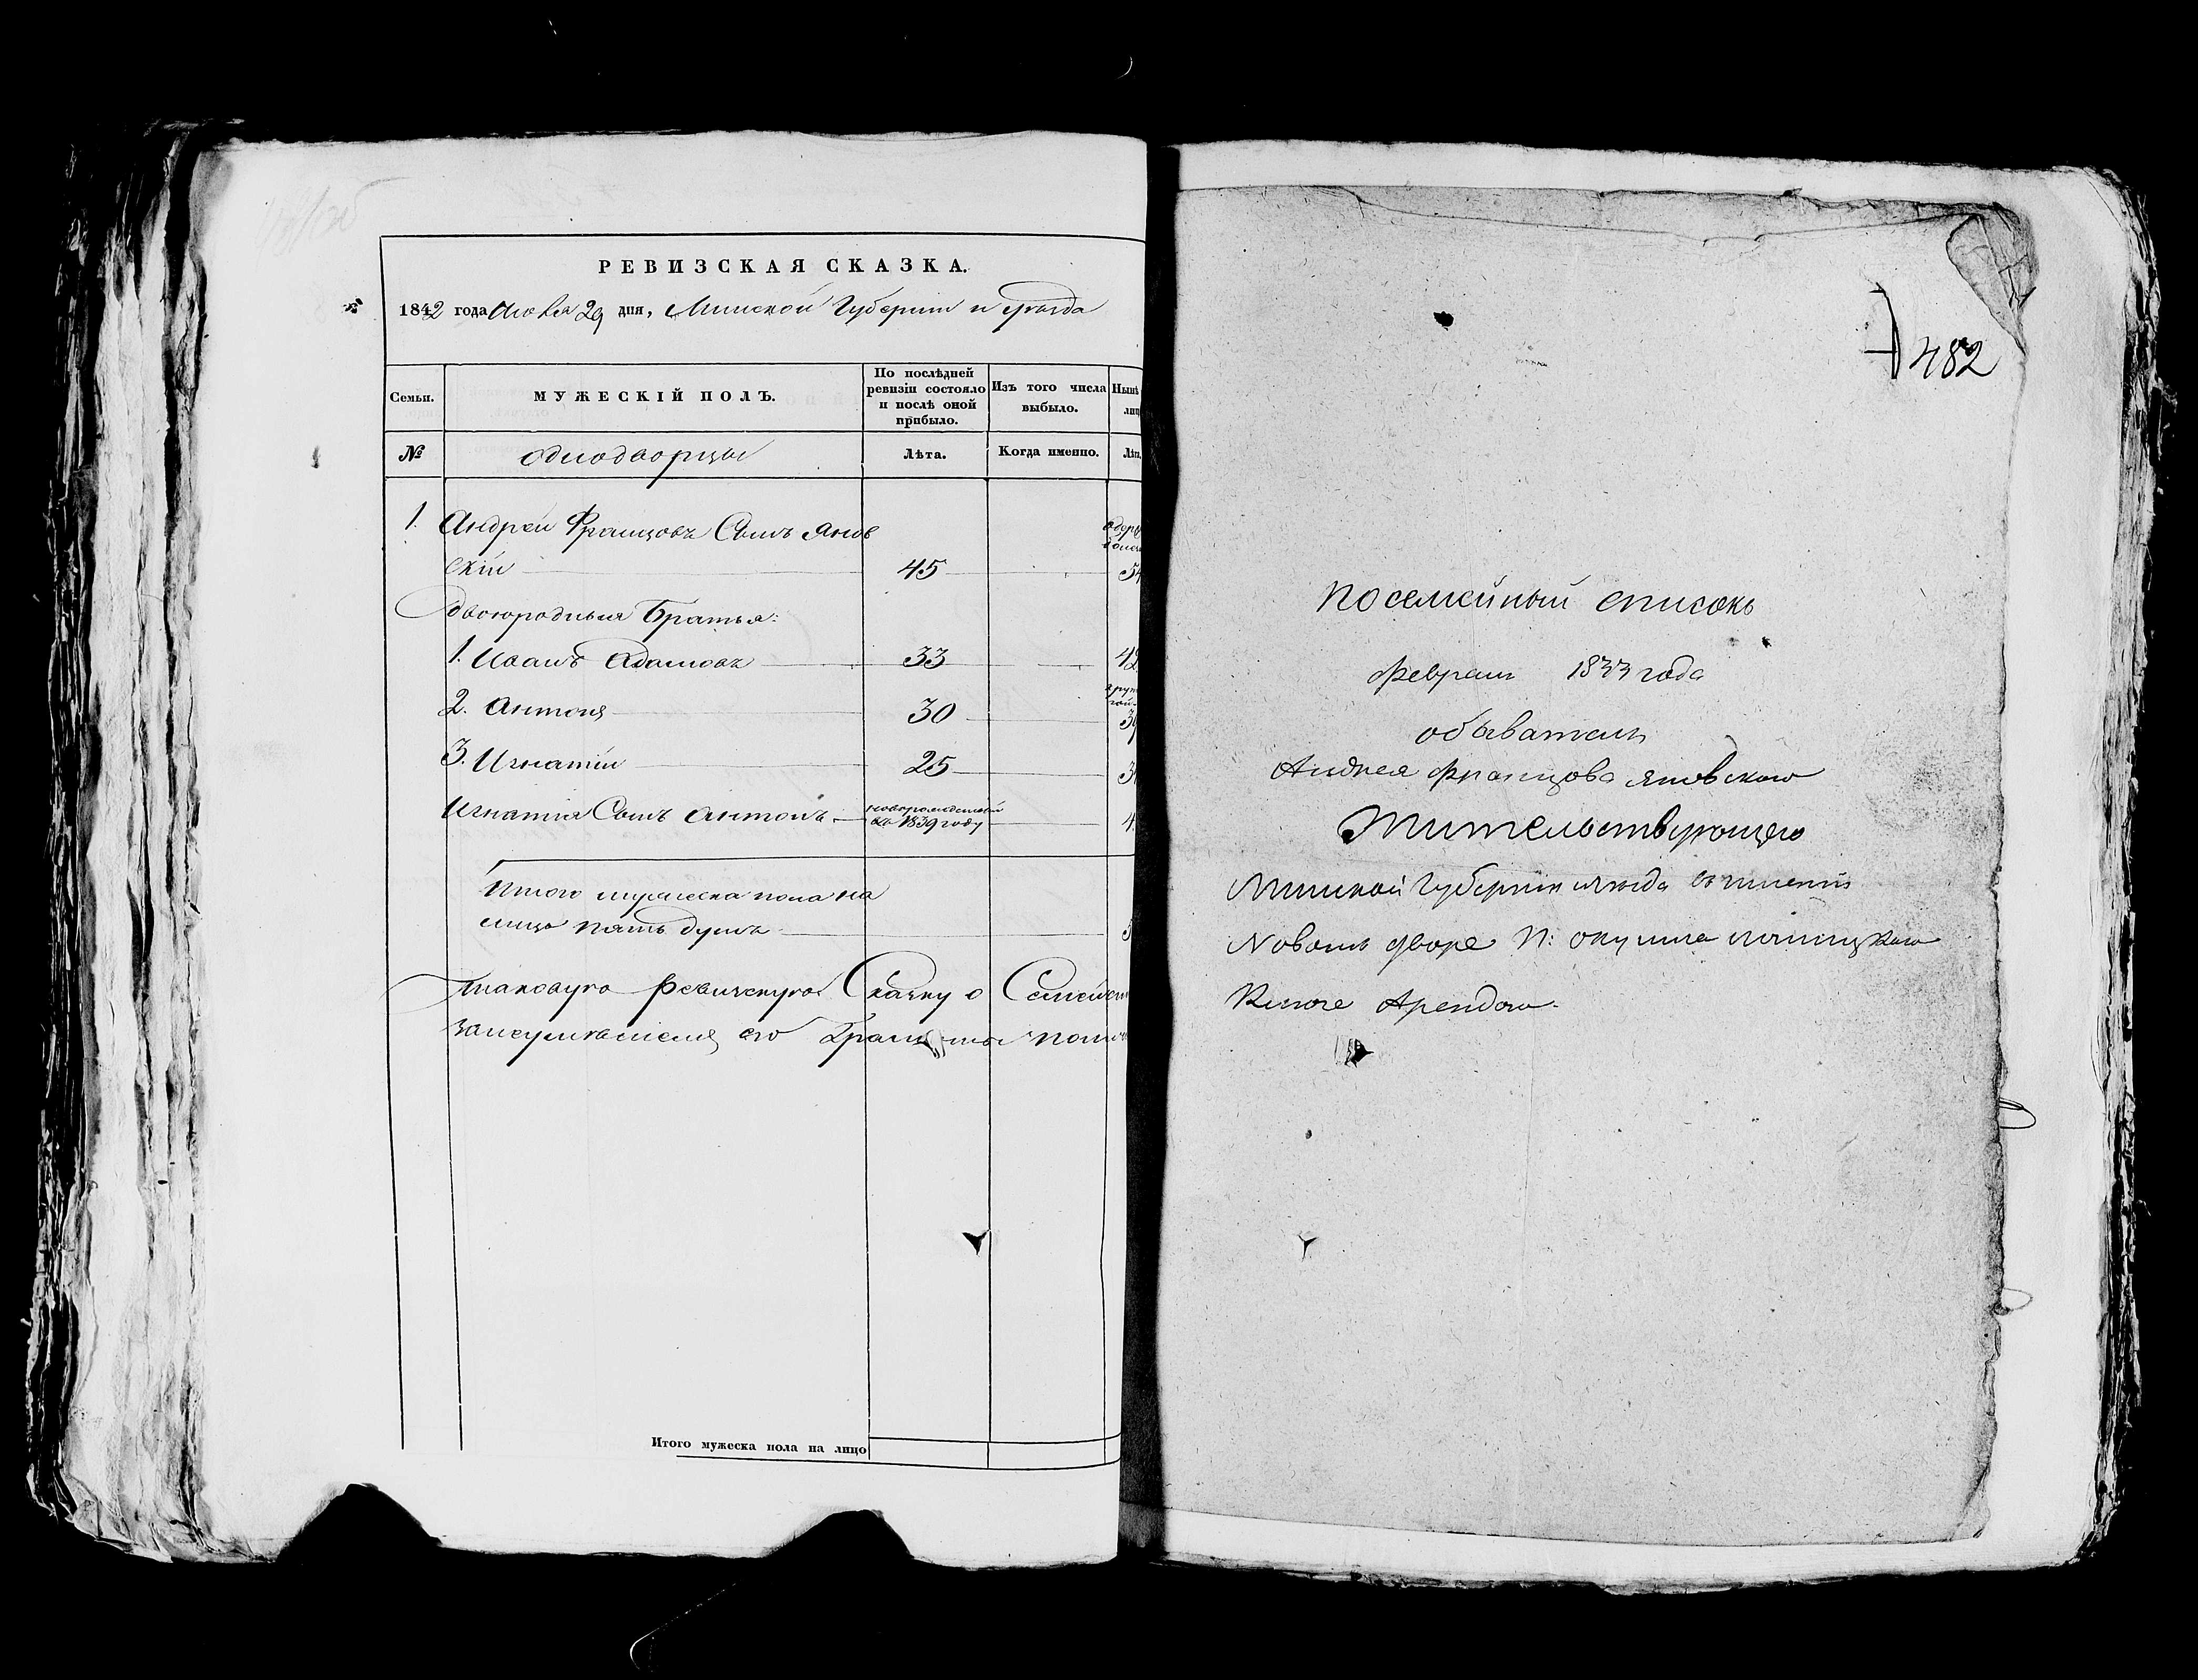 РЕВИЗСКАЯ СКАЗКА.
1842 года Июня 29 дня, Минской Губернии и уѣзда
Семьи.
МУЖЕСКІЙ ПОЛЪ.
По послѣдней ревизіи состояло и послѣ оной прибыло.
Изъ того числа выбыло.
Нынѣ лиц
№
однодворцы
Лѣта.
Когда именно.
Лѣта.
1. Андрей Францовъ Сынъ Янов
скій 45 54
двоюродныя Братья:
1. Иванъ Адамовъ 33 42
2. Антоній 30
3. Игнатій 25
Игнатія Сынъ Антонъ новорожденный въ 1839 году 4
Итого мужеска пола на
лицо пять душъ 5
таковую ревизскую Сказку о Семей
его
Итого мужеска пола на лицо
482
Посемейный списокъ
февраля 1833 года
обывателя
Андрея Францова Яновского
Жительствующего
Минской Губернии уѣзда въ имении
Новомъ дворе П:
Арендою.